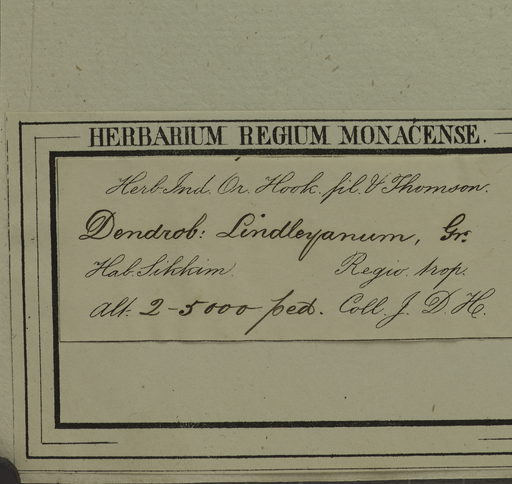 HERBARIUM REGIUM MONACENSE.
Herb. Ind. Or. Hook. fil. & Thomson.
Dendrob: Lindleyanum, Gr.
Hab. Sikkim. Regio trop.
Alt: 2-5000 ped. Coll. J. D. H.